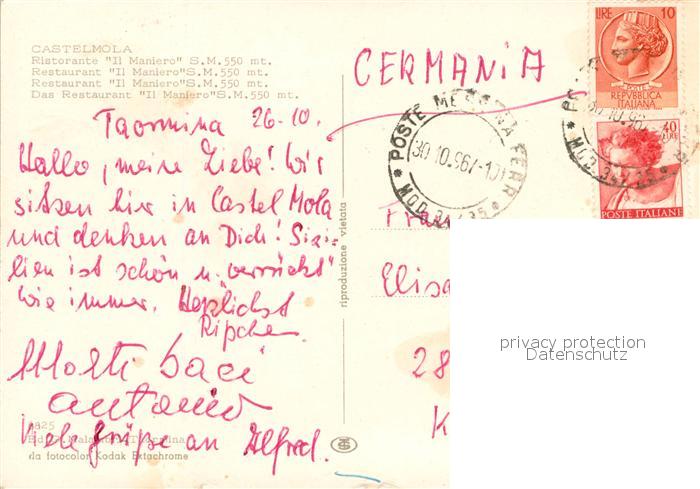 CASTELMOLA
Ristorante "Il Maniero" S.M. 550 mt.
Restaurant "Il Maniero" S.M. 550 mt.
Restaurant "Il Maniero" S.M. 550 mt.
Das Restaurant "Il Maniero" S.M. 550 mt.
Taormina 26-10.
Hallo, meine Liebe! Wir
sitzen hier in Castel Mola
und denken an Dich! Sizi-
lien ist schön u. "verrückt"
wie immer. Herzlichst
Ripchen
Molti baci
Antonio
Viele Grüße an Alfred.
da fotocolor Kodak Ektachrome
riproduzione vietata
GERMANIA
POSTE MESSINA FERR
30.10.967
LIRE 10
REPVBBLICA
ITALIANA
40
LIRE
POSTE ITALIANE
Elisa
28
K
privacy protection
Datenschutz